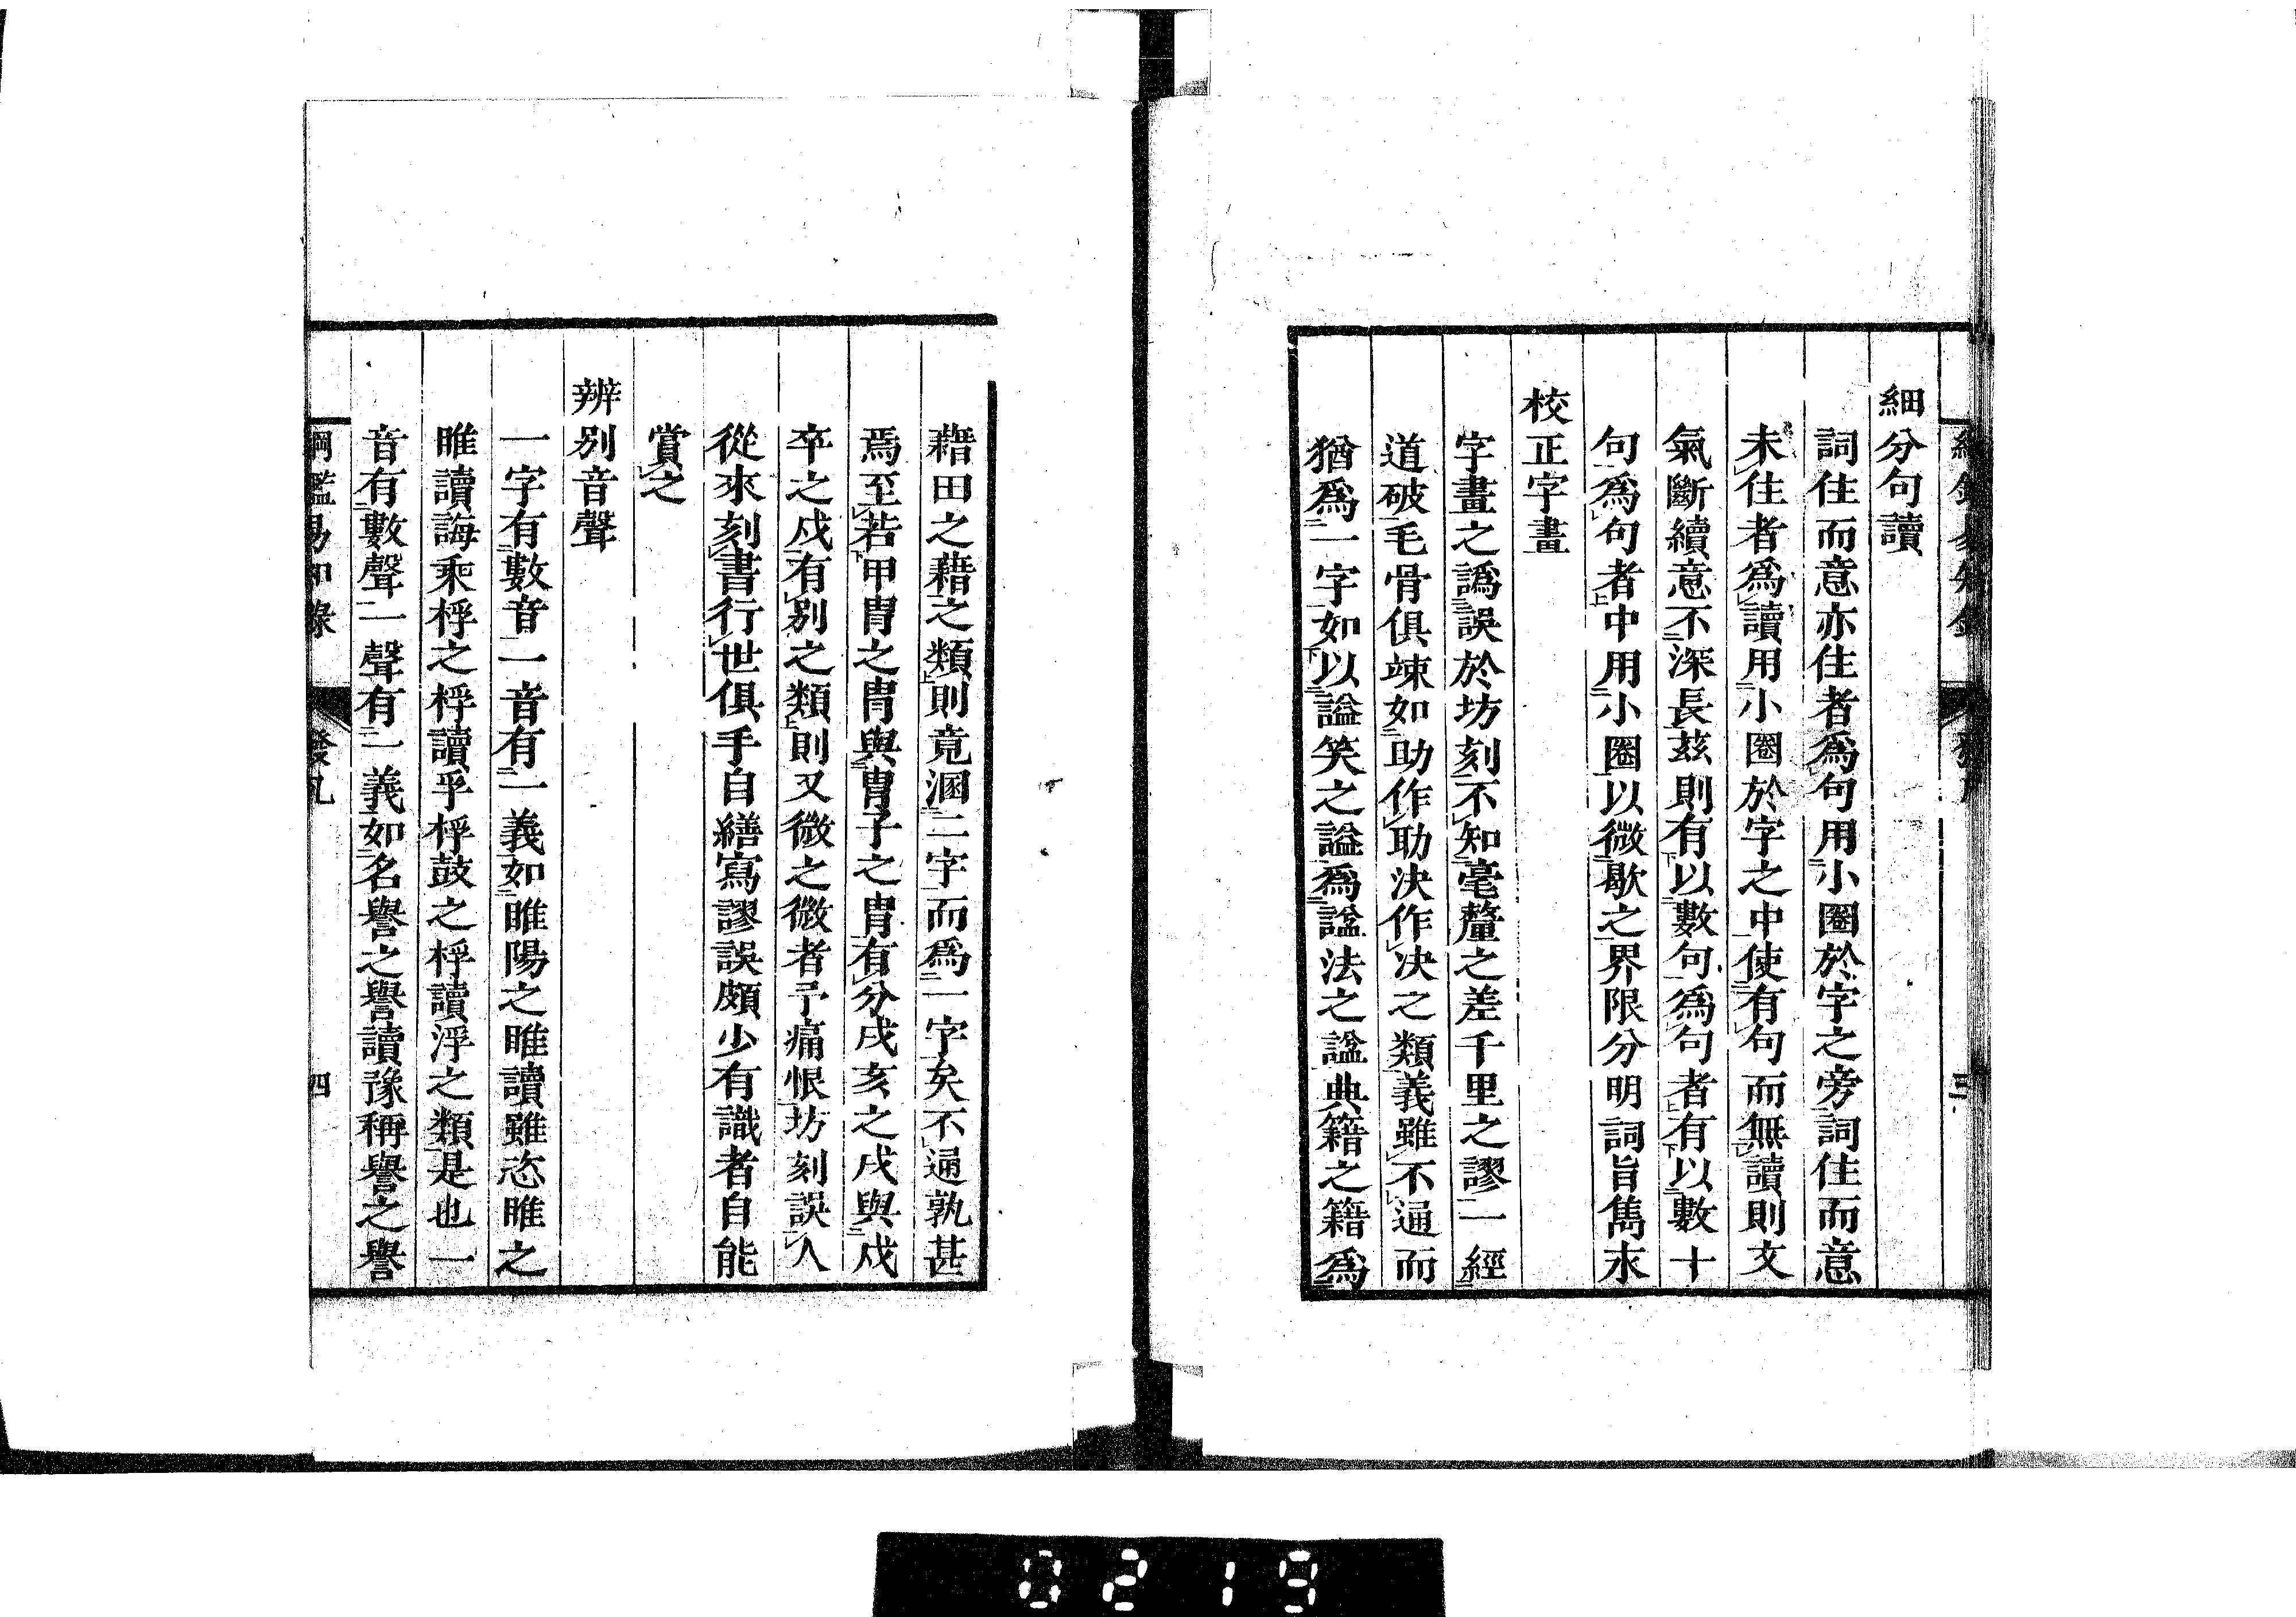 細分句讀
詞住而意亦住者爲句用小圈於字之旁詞住而意
未住者爲讀用小圈於字之中使有句而無讀則文
氣斷續意不深長茲則有以數句爲句者有以數十
句爲句者中用小圈以微歇之界限分明詞旨雋永
校正字畫
字畫之譌誤於坊刻不知毫釐之差千里之謬一經
道破毛骨俱竦如助作助決作决之類義雖不通而
猶爲一字如以謚笑之謚爲諡法之諡典籍之籍爲
藉田之藉之類則竟溷二字而爲一字矣不通孰甚
焉至若甲冑之冑與胄子之胄有分戌亥之戌與戍
卒之戍有別之類則又微之微者予痛恨坊刻誤人
從來刻書行世俱手自繕寫謬誤頗少有識者自能
賞之
辨別音聲
一字有數音一音有一義如睢陽之睢讀雖恣睢之
睢讀誨乘桴之桴讀孚桴鼓之桴讀浮之類是也一
音有數聲一聲有一義如名譽之譽讀豫稱譽之譽
綱鑑易知錄
發凡
四
0219